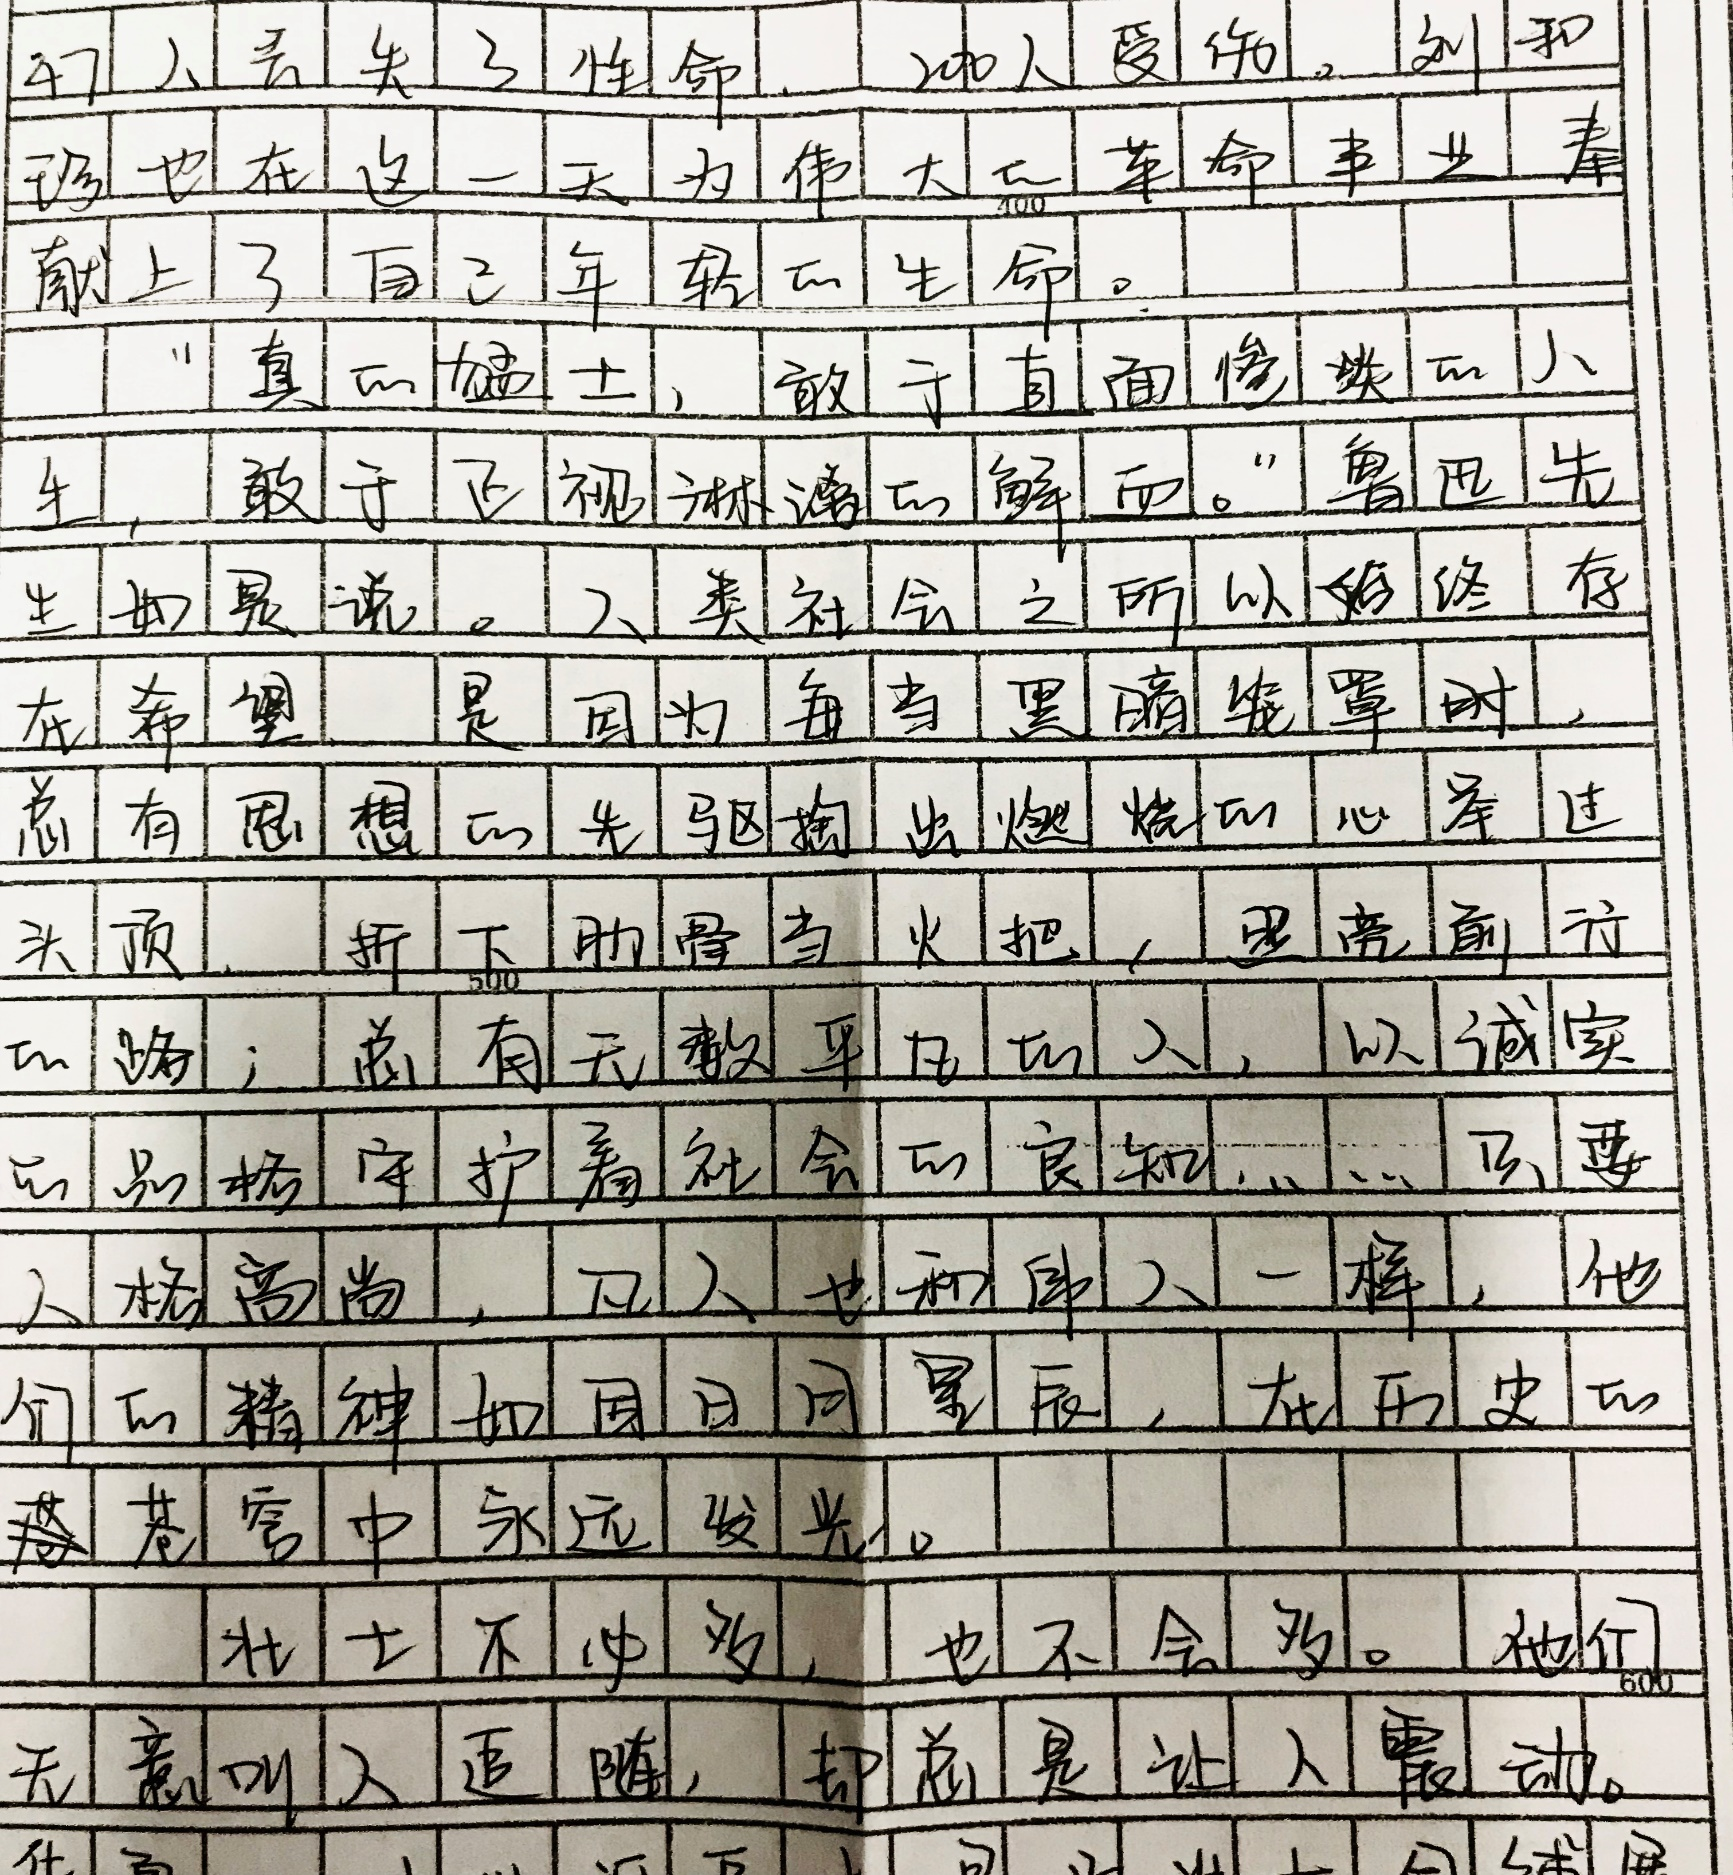 47人丢失了性命，200人受伤。刘和
珍也在这一天为伟大的革命事业奉
400
献上了自己年轻的生命。
“真的猛士，敢于直面惨淡的人
生，敢于正视淋漓的鲜血。”鲁迅先
生如是说。人类社会之所以始终存
在希望 是因为每当黑暗笼罩时，
总有思想的先驱掏出燃烧的心举过
头顶，折下肋骨当火把，照亮前行
500
的路；总有无数平凡的人，以诚实
的品格守护着社会的良知……只要
人格高尚，凡人也和伟人一样，他
们的精神如同日月星辰，在历史的
苍穹中永远发光。
壮士不必多，也不会多。他们
600
无意叫人追随，却总是让人震动。